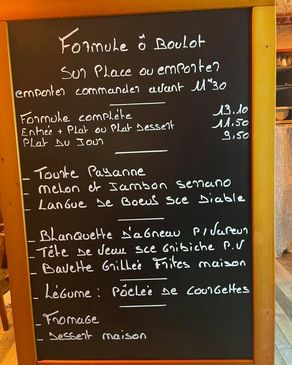 Formule ô Boulot
Sur Place ou emporter
emporter commander avant 11H30
Formule complète 13.10
Entrée + Plat ou Plat Dessert 11.50
Plat du Jour 9,50
- Tourte Paysanne
- melon et Jambon Serrano
- Langue de Boeuf Sce Diable
- Blanquette D'agneau P/Vapeur
- Tête de Veau Sce Gribiche P.V
- Bavette Grillée Frites maison
- Légume : Poêlée de Courgettes
- Fromage
- Dessert maison